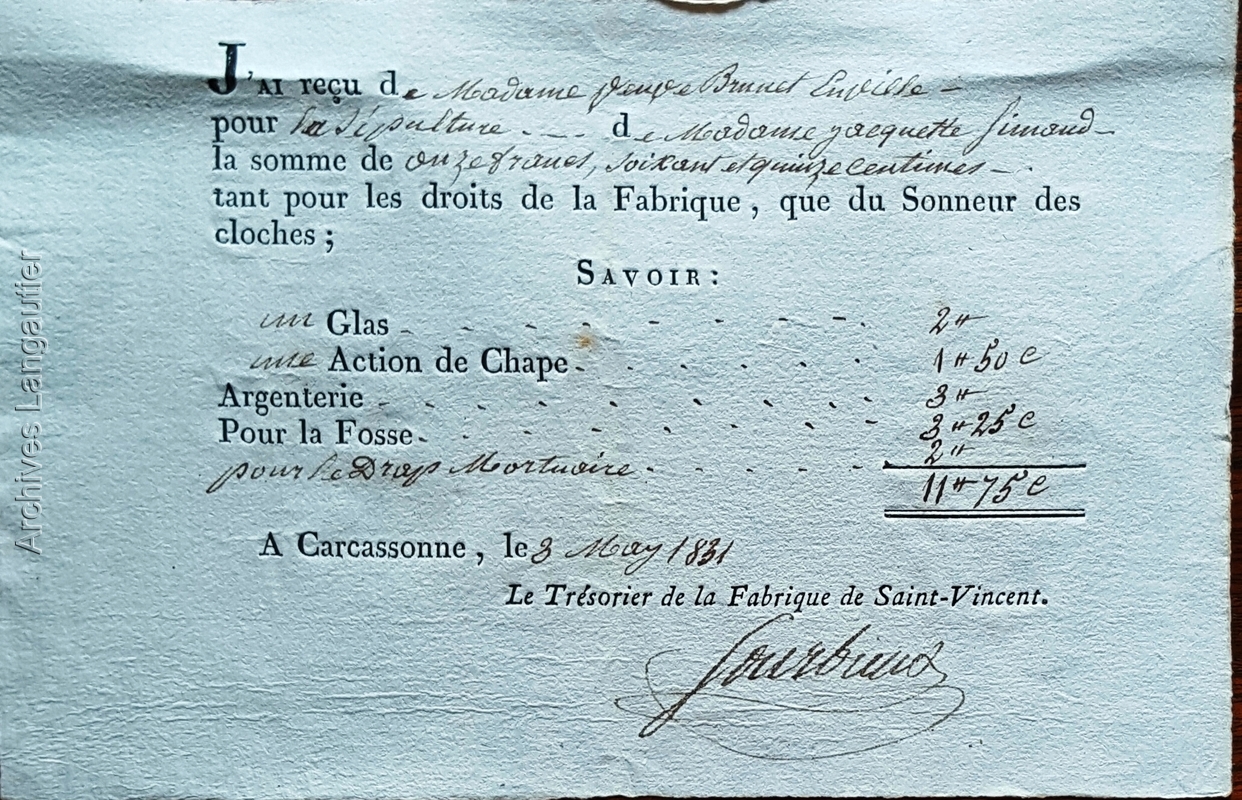 J'AI reçu de Madame veuve Brunet
pour la Sépulture d e Madame Jacquette Simand
la somme de onze francs, soixant et quinze centimes
tant pour les droits de la Fabrique, que du Sonneur des
cloches ;
SAVOIR :
un Glas 2 ₶
une Action de Chape 1 ₶ 50 c
Argenterie 3 ₶
Pour la Fosse 3 ₶ 25 c
pour le Drap Mortuaire 2 ₶
11 ₶ 75 c
A Carcassonne, le 3 May 1831
Le Trésorier de la Fabrique de Saint-Vincent.
Archives Langautier